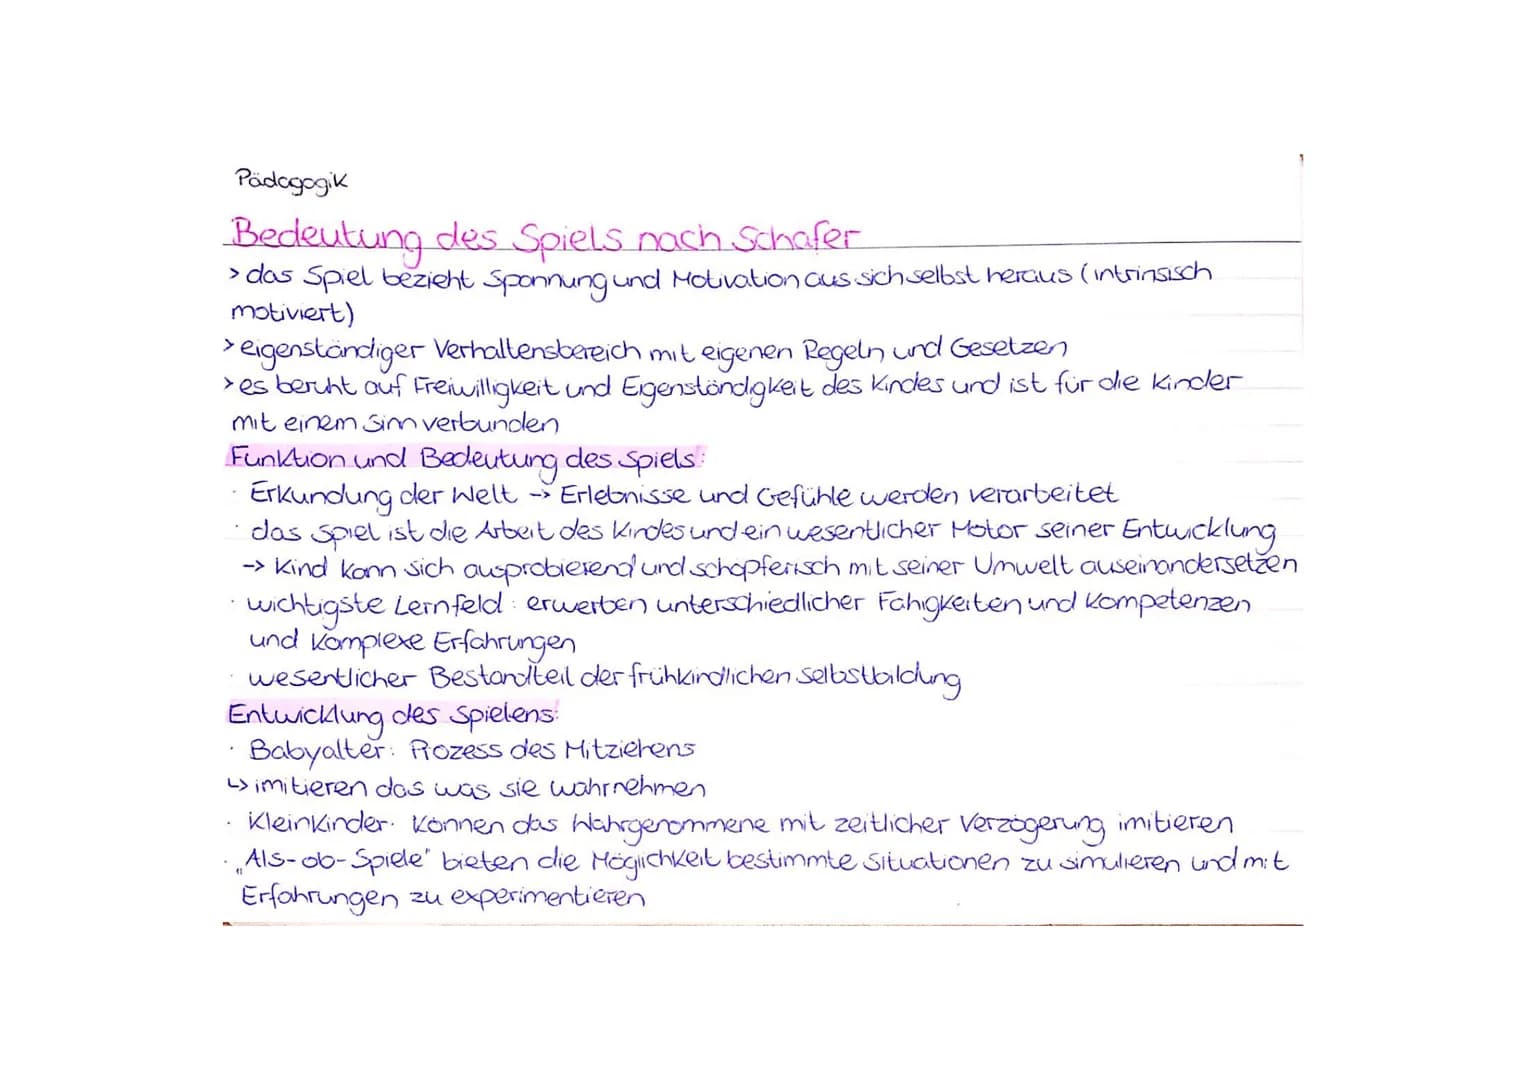 Pädagogik
Bedeutung des Spiels nach Schäfer
> das Spiel bezieht Spannung und Motivation aus sich selbst heraus (intrinsisch
motiviert)
> eigenständiger Verhaltensbereich mit eigenen Regeln und Gesetzen
> es beruht auf Freiwilligkeit und Eigenständigkeit des Kindes und ist für die Kinder
mit einem Sinn verbunden
Funktion und Bedeutung des Spiels:
· Erkundung der Welt -> Erlebnisse und Gefühle werden verarbeitet
· das Spiel ist die Arbeit des Kindes und ein wesentlicher Motor seiner Entwicklung
-> Kind kann sich ausprobierend und schöpferisch mit seiner Umwelt auseinandersetzen
· wichtigste Lernfeld: erwerben unterschiedlicher Fähigkeiten und Kompetenzen
und komplexe Erfahrungen
· wesentlicher Bestandteil der frühkindlichen Selbstbildung
Entwicklung des Spielens:
· Babyalter: Prozess des Mitziehens
↳ imitieren das was sie wahrnehmen
· Kleinkinder: können das Wahrgenommene mit zeitlicher Verzögerung imitieren
· „Als-ob-Spiele" bieten die Möglichkeit bestimmte Situationen zu simulieren und mit
Erfahrungen zu experimentieren